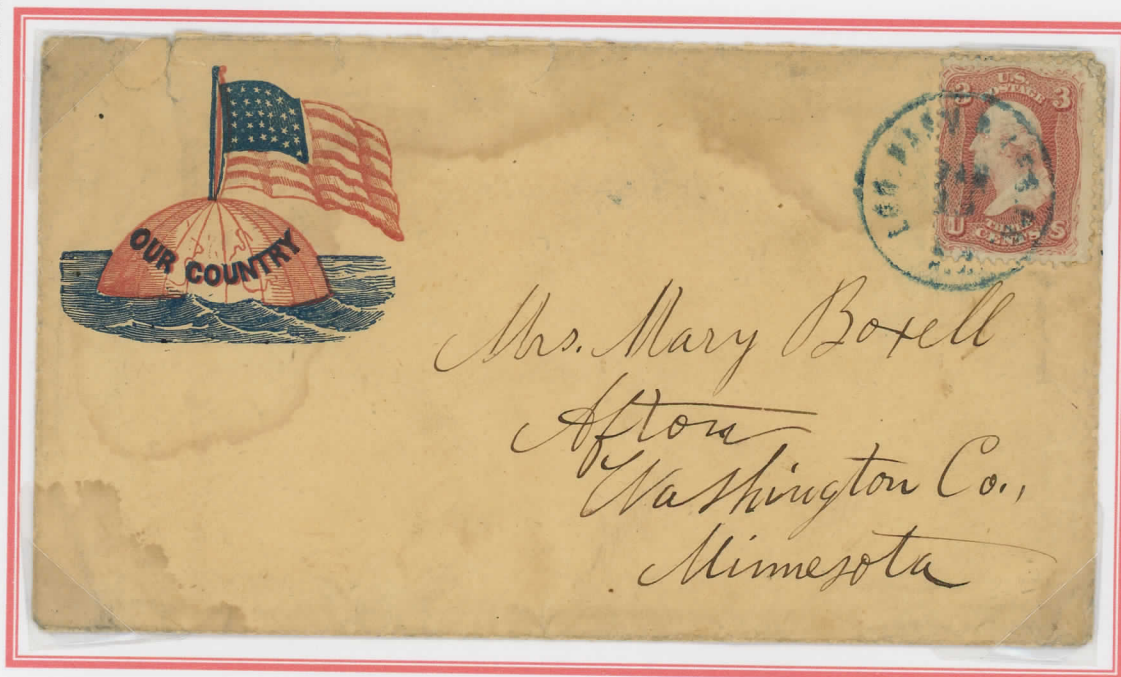 OUR COUNTRY
3 U.S. POSTAGE 3
U THREE CENTS S
Mrs. Mary Boxell
Afton
Washington Co.,
Minnesota